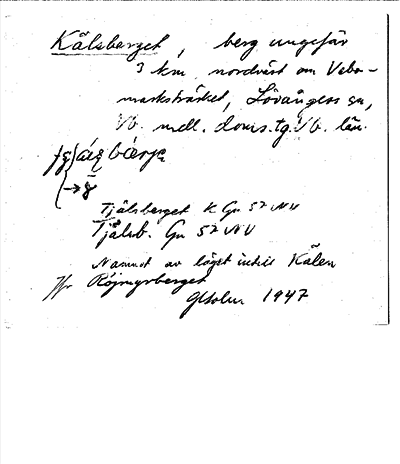 Kälsberget, berg ungefär
3 km. nordväst om Vebo-
marksträsket, Lövångers sn,
Vb. mell. doms.tg. Vb. län.
Tjälsberget K Gn 52 NV
Tjålsb. Gn 52 NV
Namnet av läget intill Kälen
Jfr Röjmyrberget
GHolm 1947